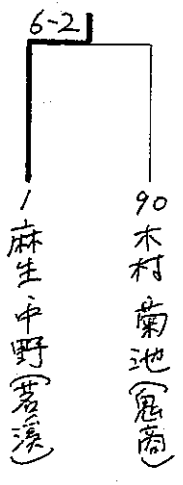 6-2
1 麻生 中野(茗溪)
90 木村 菊池(鬼商)